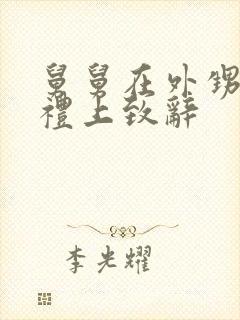 舅舅在外甥
禮上致辭
李光耀